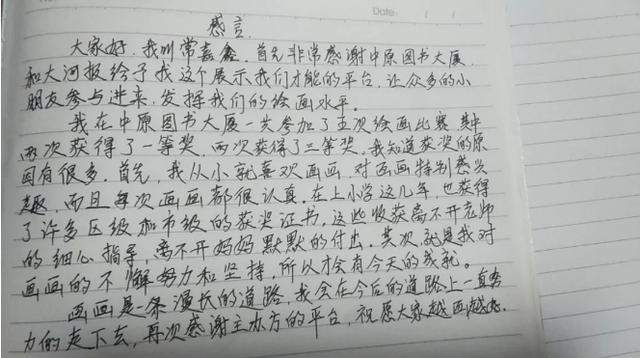 Date:
感言
大家好,我叫常嘉鑫,首先非常感谢中原图书大厦
和大河报给予我这个展示我们才能的平台,让众多的小
朋友参与进来,发挥我们的绘画水平。
我在中原图书大厦一共参加了五次绘画比赛,其中
两次获得了一等奖,两次获得了二等奖,我知道获奖的原
因有很多,首先,我从小就喜欢画画,对画画特别感兴
趣,而且每次画画都很认真。在上小学这几年,也获得
了许多区级和市级的获奖证书,这些收获离不开老师
的细心指导,离不开妈妈默默的付出,其次,就是我对
画画的不懈努力和坚持,所以才会有今天的成就。
画画是条漫长的道路,我会在今后的道路上一直努
力的走下去,再次感谢主办方的平台,祝愿大家越画越好。